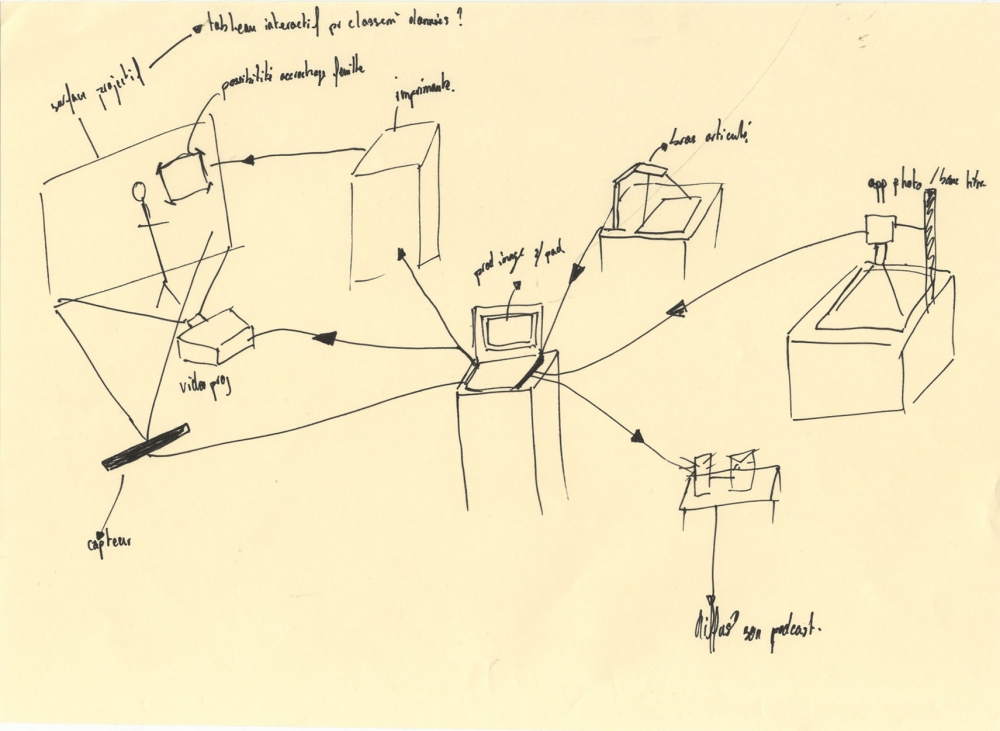 tableau interactif pr classemt données ?
surface projectif
possibilité accrochage feuille
imprimante.
bras articulé
app photo / banc titre
prod image s/ pad
video proj
capteur
diffus° son podcast.